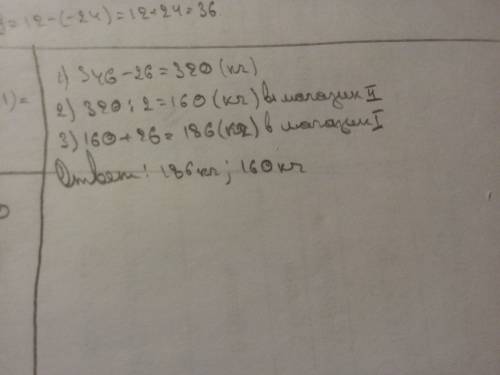 y=12-(-24)=12+24=36
1) 346-26=320 (кг)
1)=
2) 320:2=160 (кг) в магазин II
3) 160+26=186(кг) в магазин I
Ответ: 186кг; 160кг